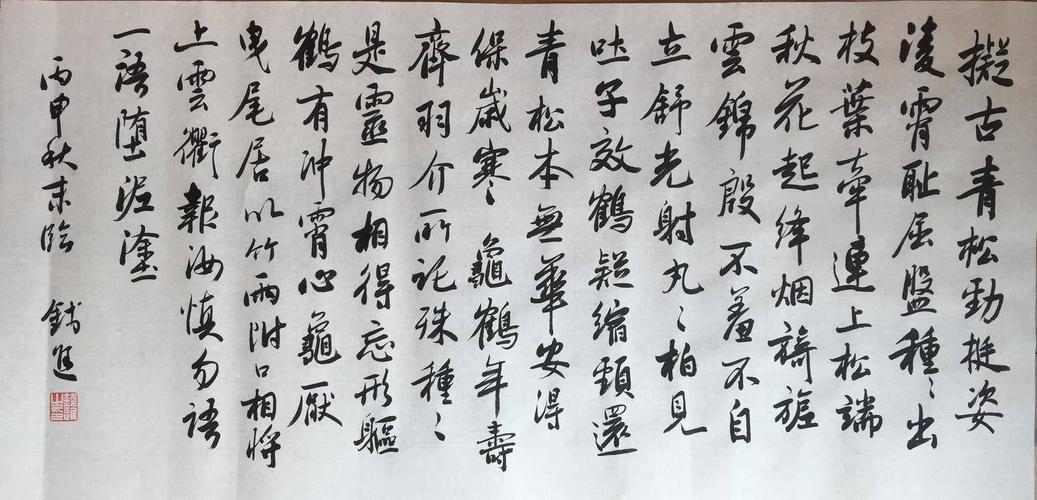 擬古青松勁挺姿
凌霄耻屈盤種〻出
枝葉牽連上松端
秋花起絳烟旖旎
雲錦殷不羞不自
立舒光射丸〻柏見
吐子效鶴疑縮頸還
青松本無華安得
保歲寒〻龜鶴年壽
齊羽介所託殊種〻
是靈物相得忘形軀
鶴有冲霄心龜厭
曳尾居以竹兩附口相將
上雲衢報汝慎勿語
一語墮泥塗
丙申秋末臨 錢進